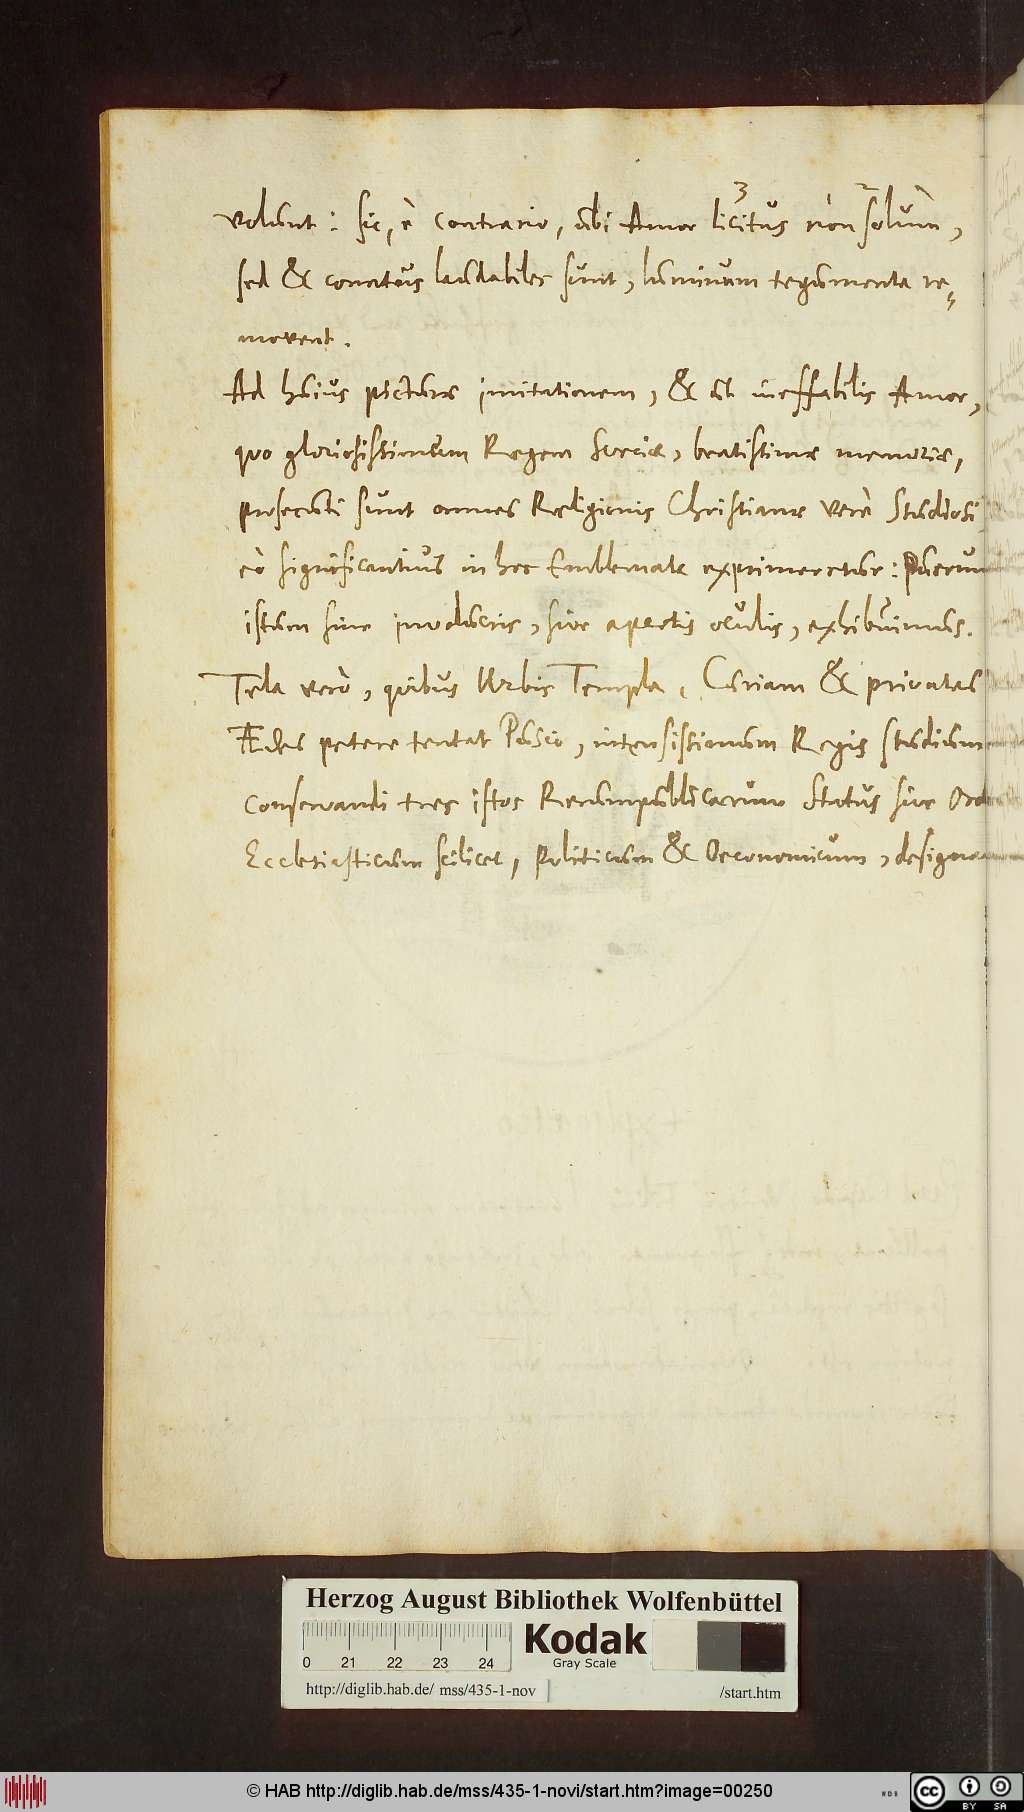 volunt: sic, è contrario, ubi Amor licitus non solùm,
3 2
sed & conatus laudabiles sunt, luminum tegumenta re-
movent.
Ad huius picturæ imitationem, & ut ineffabilis Amor,
quo gloriosissimum Regem Sueciæ, beatissimæ memoriæ,
prosecuti sunt omnes Religionis Christianæ verè Studiosi
eò significantius in hoc Emblemate exprimeretur: Puerum
istum sine involucris, sive apertis oculis, exhibuimus.
Tela verò, quibus Urbis Templa, Curiam & privatas
Ædes petere tentat Pusio, intensissimum Regis studium
conservandi tres istos Rerumpublicarum Status sive Ord
Ecclesiasticum scilicet, Politicum & Oeconomicum, designa
Herzog August Bibliothek Wolfenbüttel
0 21 22 23 24
Kodak
Gray Scale
http://diglib.hab.de/ mss/435-1-nov
/start.htm
© HAB http://diglib.hab.de/mss/435-1-novi/start.htm?image=00250
WDB
cc
BY SA